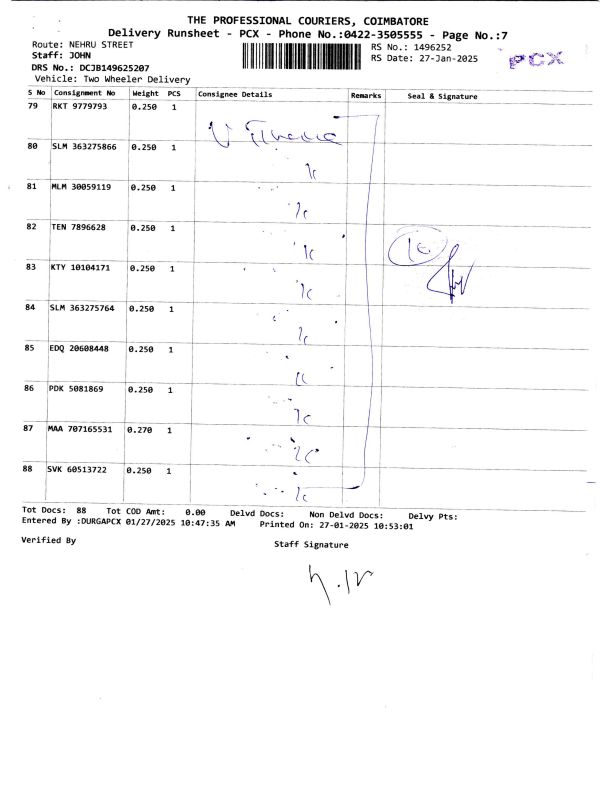 THE PROFESSIONAL COURIERS, COIMBATORE
Delivery Runsheet - PCX - Phone No.:0422-3505555 - Page No.:7
Route: NEHRU STREET
RS No.: 1496252
Staff: JOHN
RS Date: 27-Jan-2025
PCX
DRS No.: DCJB149625207
Vehicle: Two Wheeler Delivery
S No Consignment No Weight PCS Consignee Details Remarks Seal & Signature
79 RKT 9779793 0.250 1
80 SLM 363275866 0.250 1
81 MLM 30059119 0.250 1
82 TEN 7896628 0.250 1
83 KTY 10104171 0.250 1
84 SLM 363275764 0.250 1
85 EDQ 20608448 0.250 1
86 PDK 5081869 0.250 1
87 MAA 707165531 0.270 1
88 SVK 60513722 0.250 1
Tot Docs: 88 Tot COD Amt: 0.00 Delvd Docs: Non Delvd Docs: Delvy Pts:
Entered By :DURGAPCX 01/27/2025 10:47:35 AM Printed On: 27-01-2025 10:53:01
Verified By
Staff Signature